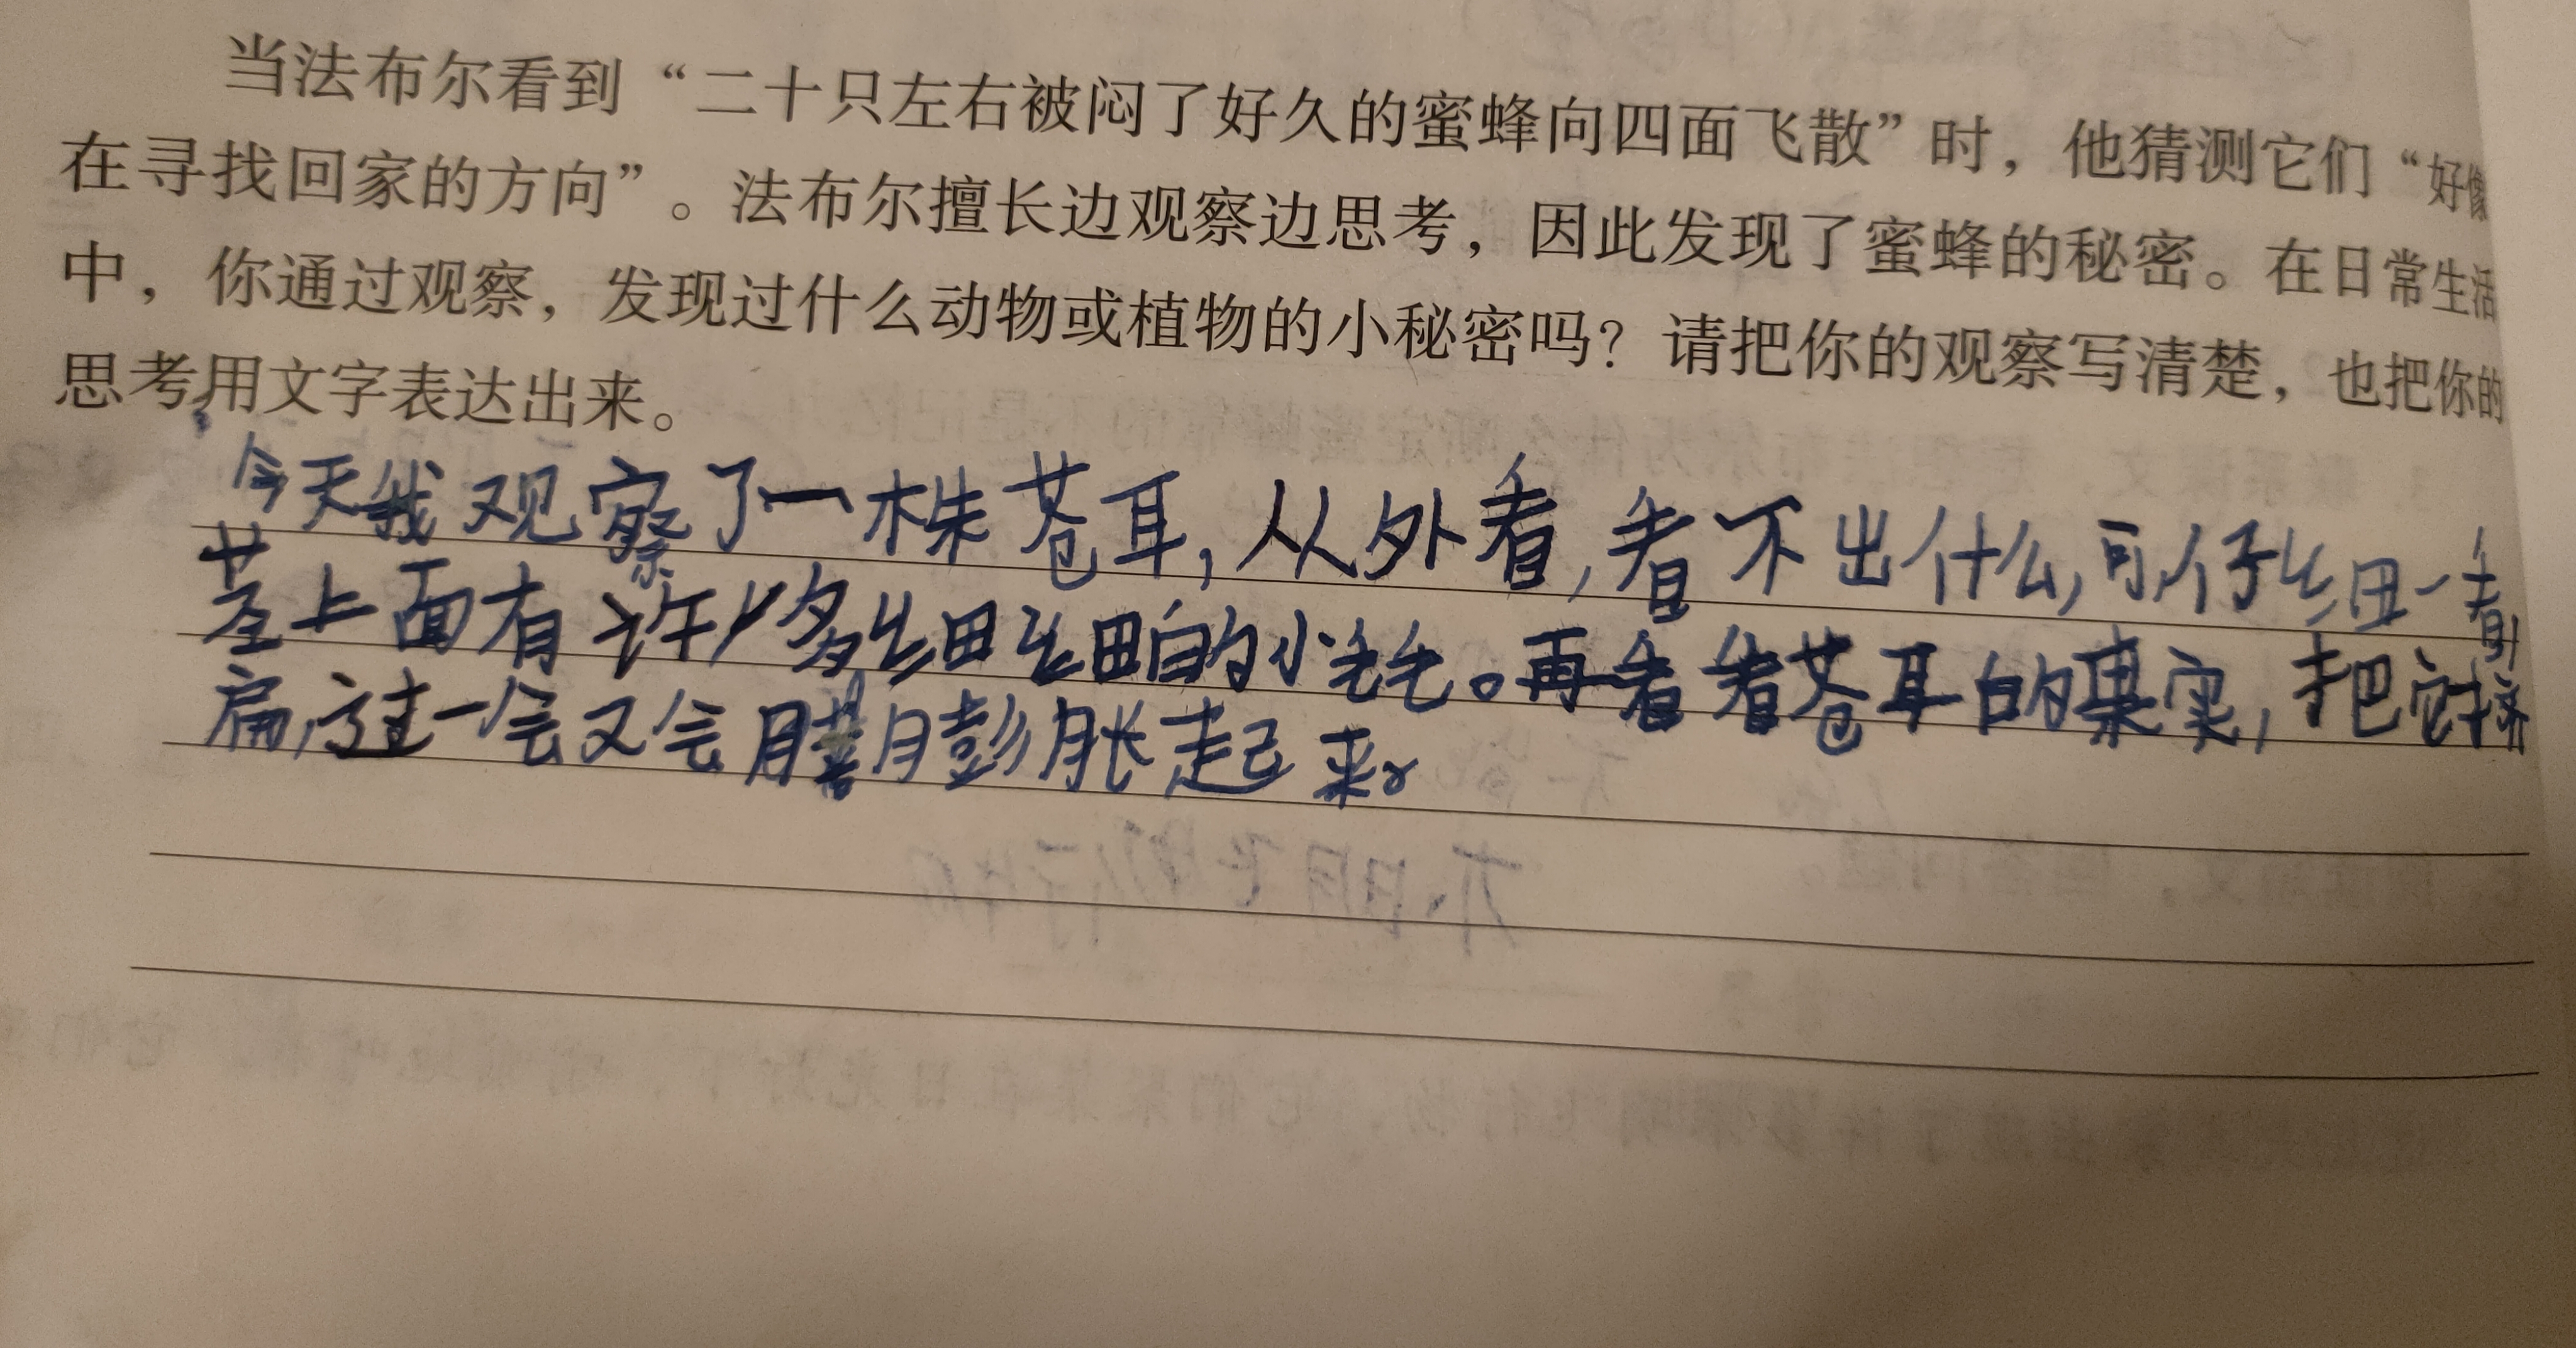 当法布尔看到“二十只左右被闷了好久的蜜蜂向四面飞散”时，他猜测它们“好像
在寻找回家的方向”。法布尔擅长边观察边思考，因此发现了蜜蜂的秘密。在日常生活
中，你通过观察，发现过什么动物或植物的小秘密吗？请把你的观察写清楚，也把你的
思考用文字表达出来。
今天我观察了一株苍耳，从外看，看不出什么，可仔细一看，
茎上面有许多细细的小毛毛。再看看苍耳的果实，把它挤
扁，过一会又会膨胀起来。